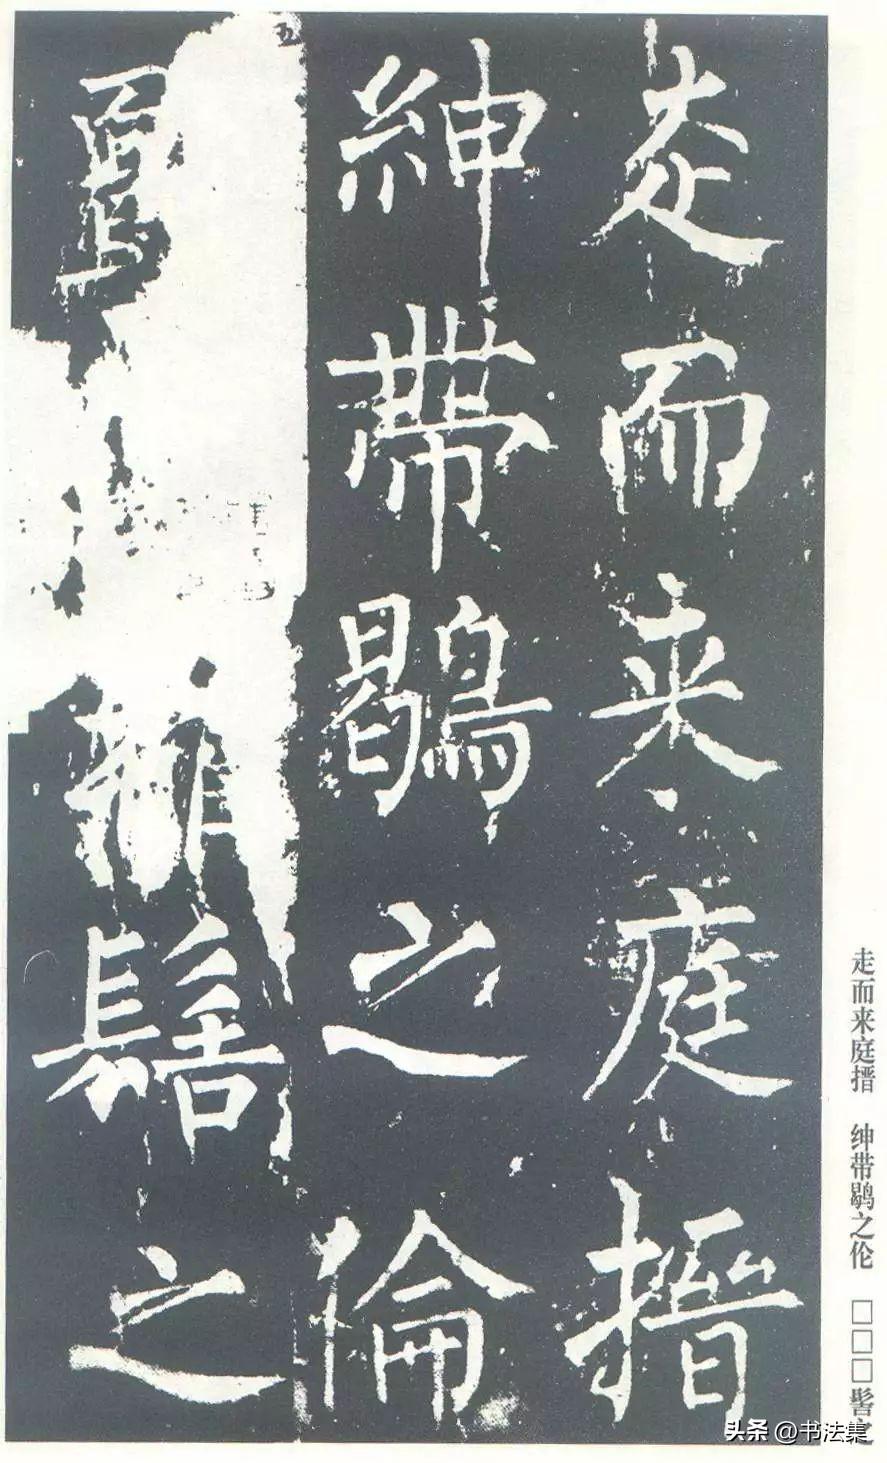 走而来庭搢
紳帶鶡之倫
髻之
走而来庭搢 绅带鹖之伦 □□□髻之
头条 @书法集